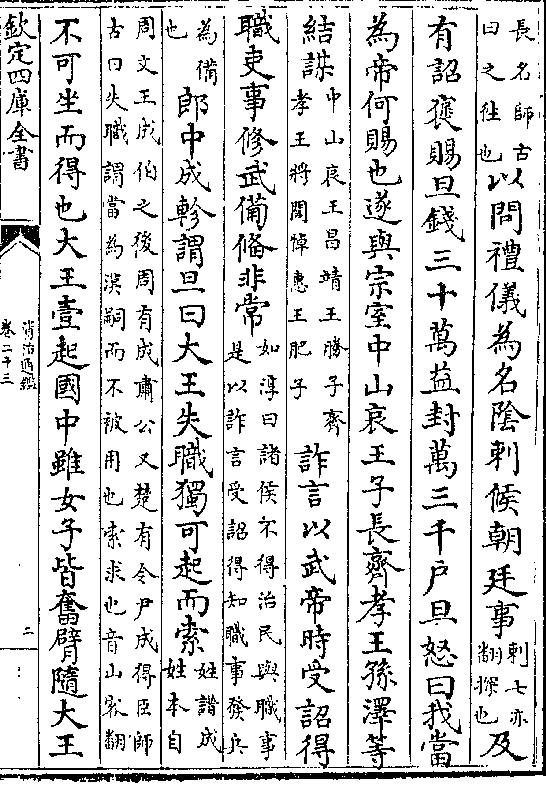 長名師古曰之往也以問禮儀為名陰刺候朝廷事刺七亦翻探也及
有詔褒賜旦錢三十萬益封萬三千户旦怒曰我當
為帝何賜也遂與宗室中山哀王子長齊孝王孫澤等
結謀中山哀王昌靖王勝子齊孝王將閭悼惠王肥子詐言以武帝時受詔得
職吏事修武備備非常如淳曰諸侯不得治民與職事是以詐言受詔得知職事發兵
為備也郎中成軫謂旦曰大王失職獨可起而索姓譜成姓本自
周文王成伯之後周有成肅公又楚有令尹成得臣師古曰失職謂當為漢嗣而不被用也索求也音山客翻
不可坐而得也大王壹起國中雖女子皆奮臂隨大王
欽定四庫全書
資治通鑑
卷二十三
二